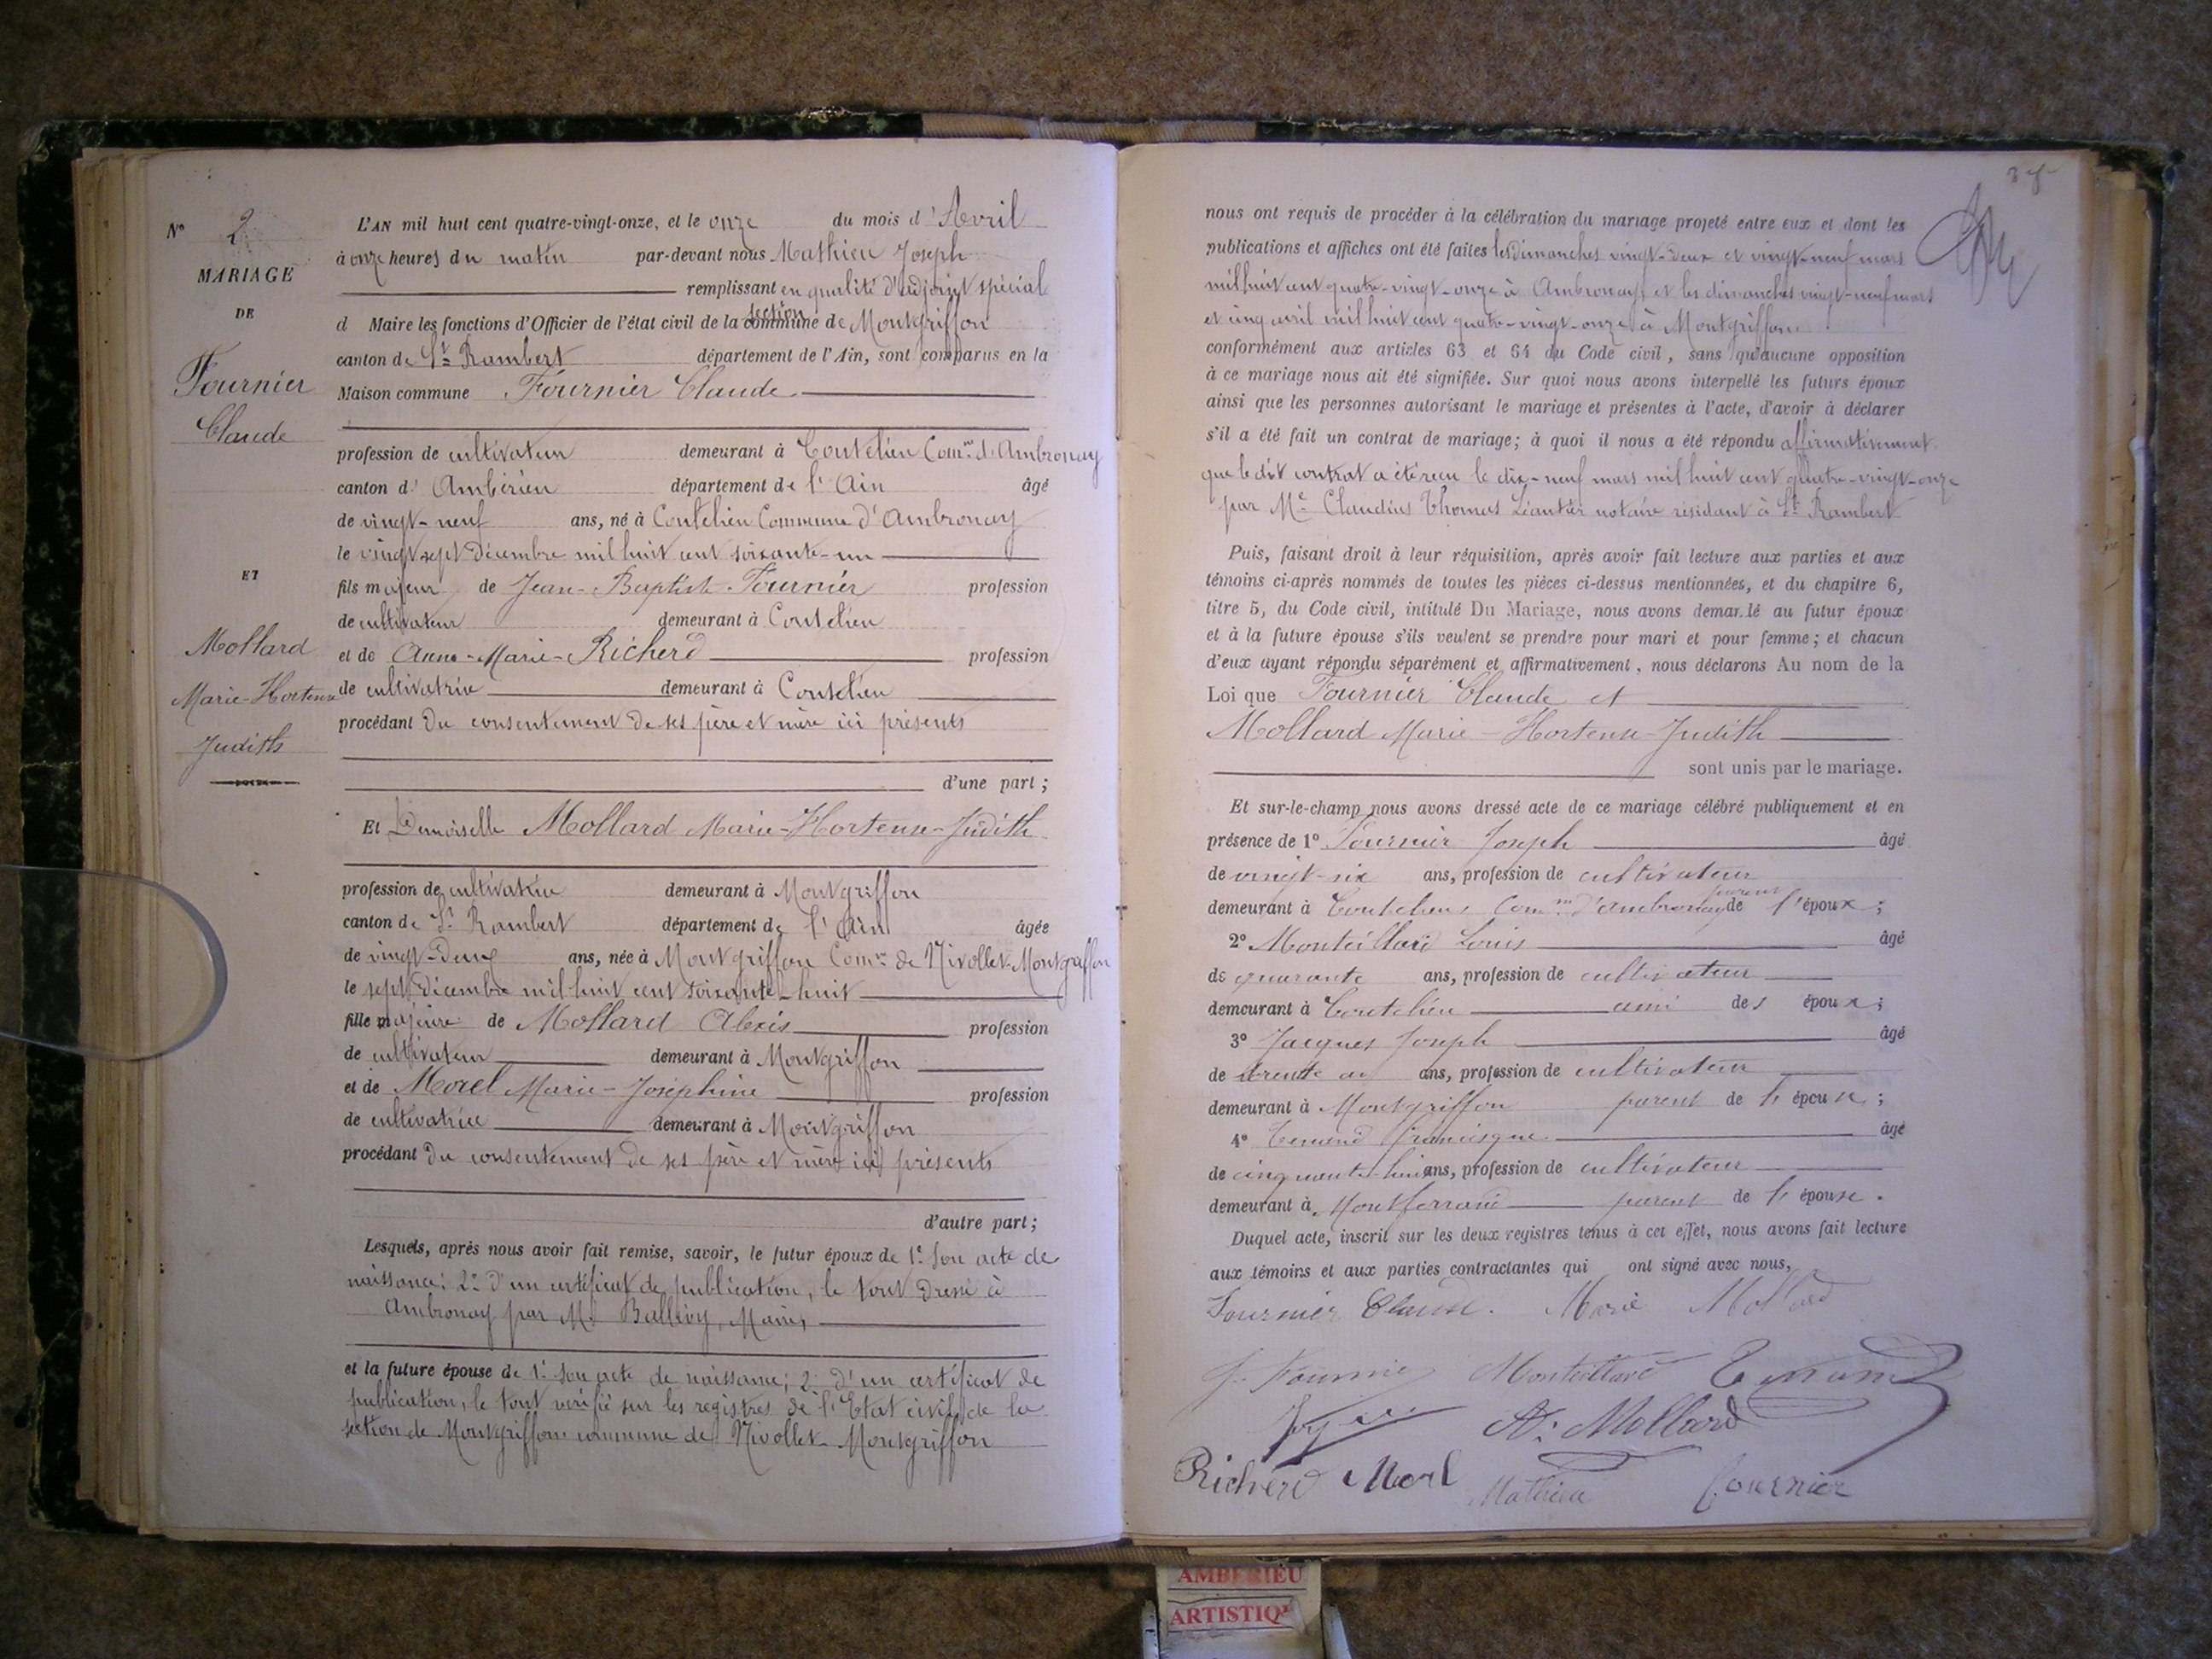 N° 2
MARIAGE
DE
Fournier
Claude
ET
Mollard
Marie-Hortense
Judith
L'AN mil huit cent quatre-vingt-onze, et le onze du mois d'Avril
à onze heures du matin par-devant nous Mathieu Joseph
remplissant en qualité d'adjoint spécial
section
d Maire les fonctions d'Officier de l'état civil de la commune de Montgriffon
canton de St Rambert département de l'Ain, sont comparus en la
Maison commune Fournier Claude
profession de cultivateur demeurant à Coutelieu Comne d'Ambronay
canton d' Ambérieu département de l'Ain âgé
de vingt-neuf ans, né à Coutelieu Commune d'Ambronay
le vingt sept Décembre mil huit cent soixante-un
fils majeur de Jean-Baptiste Fournier profession
de cultivateur demeurant à Coutelieu
et de Anne-Marie-Richerd profession
de cultivatrice demeurant à Coutelieu
procédant du consentement de ses père et mère ici présents
d'une part;
Et Demoiselle Mollard Marie-Hortense-Judith
profession de cultivatrice demeurant à Montgriffon
canton de St Rambert département de l'Ain âgée
de vingt-deux ans, née à Montgriffon Comne de Nivollet-Montgriffon
le sept Décembre mil huit cent soixante-huit
fille majeure de Mollard Alexis profession
de cultivateur demeurant à Montgriffon
et de Morel Marie-Joséphine profession
de cultivatrice demeurant à Montgriffon
procédant du consentement de ses père et mère ici présents
d'autre part;
Lesquels, après nous avoir fait remise, savoir, le futur époux de 1° son acte de
naissance; 2° d'un certificat de publication, le tout dressé à
Ambronay par Mr Ballévy, Maire
et la future épouse de 1° son acte de naissance; 2° d'un certificat de
publication, le tout vérifié sur les registres de l'Etat civil de la
section de Montgriffon commune de Nivollet-Montgriffon
nous ont requis de procéder à la célébration du mariage projeté entre eux et dont les
publications et affiches ont été faites les Dimanches vingt-deux et vingt-neuf mars
mil huit cent quatre-vingt-onze à Ambronay, et les dimanches vingt-neuf mars
et cinq avril mil huit cent quatre-vingt-onze à Montgriffon
conformément aux articles 63 et 64 du Code civil, sans qu'aucune opposition
à ce mariage nous ait été signifiée. Sur quoi nous avons interpellé les futurs époux
ainsi que les personnes autorisant le mariage et présentes à l'acte, d'avoir à déclarer
s'il a été fait un contrat de mariage; à quoi il nous a été répondu affirmativement
que le dit contrat a été reçu le dix-neuf mars mil huit cent quatre-vingt-onze
par Me Claudius Thomas Léautier notaire résidant à St Rambert
Puis, faisant droit à leur réquisition, après avoir fait lecture aux parties et aux
témoins ci-après nommés de toutes les pièces ci-dessus mentionnées, et du chapitre 6,
titre 5, du Code civil, intitulé Du Mariage, nous avons demandé au futur époux
et à la future épouse s'ils veulent se prendre pour mari et pour femme; et chacun
d'eux ayant répondu séparément et affirmativement, nous déclarons Au nom de la
Loi que Fournier Claude et
Mollard Marie-Hortense-Judith
sont unis par le mariage.
Et sur-le-champ nous avons dressé acte de ce mariage célébré publiquement et en
présence de 1° Fournier Joseph âgé
de vingt-six ans, profession de cultivateur
parent
demeurant à Coutelieu Comne d'Ambronay de l'époux;
2° Monteillard Louis âgé
de quarante ans, profession de cultivateur
demeurant à Coutelieu ami des époux;
3° Jacques Joseph âgé
de trente ans, profession de cultivateur
demeurant à Montgriffon parent de l'épouse;
4° francisque âgé
de cinquante-huit ans, profession de cultivateur
demeurant à Montferrand parent de l'épouse.
Duquel acte, inscrit sur les deux registres tenus à cet effet, nous avons fait lecture
aux témoins et aux parties contractantes qui ont signé avec nous,
Fournier Claude. Marie Mollard
J. Fournier Monteillard
A. Mollard
Richerd Morel Mathieu fournier
AMBÉRIEU
ARTISTIQ